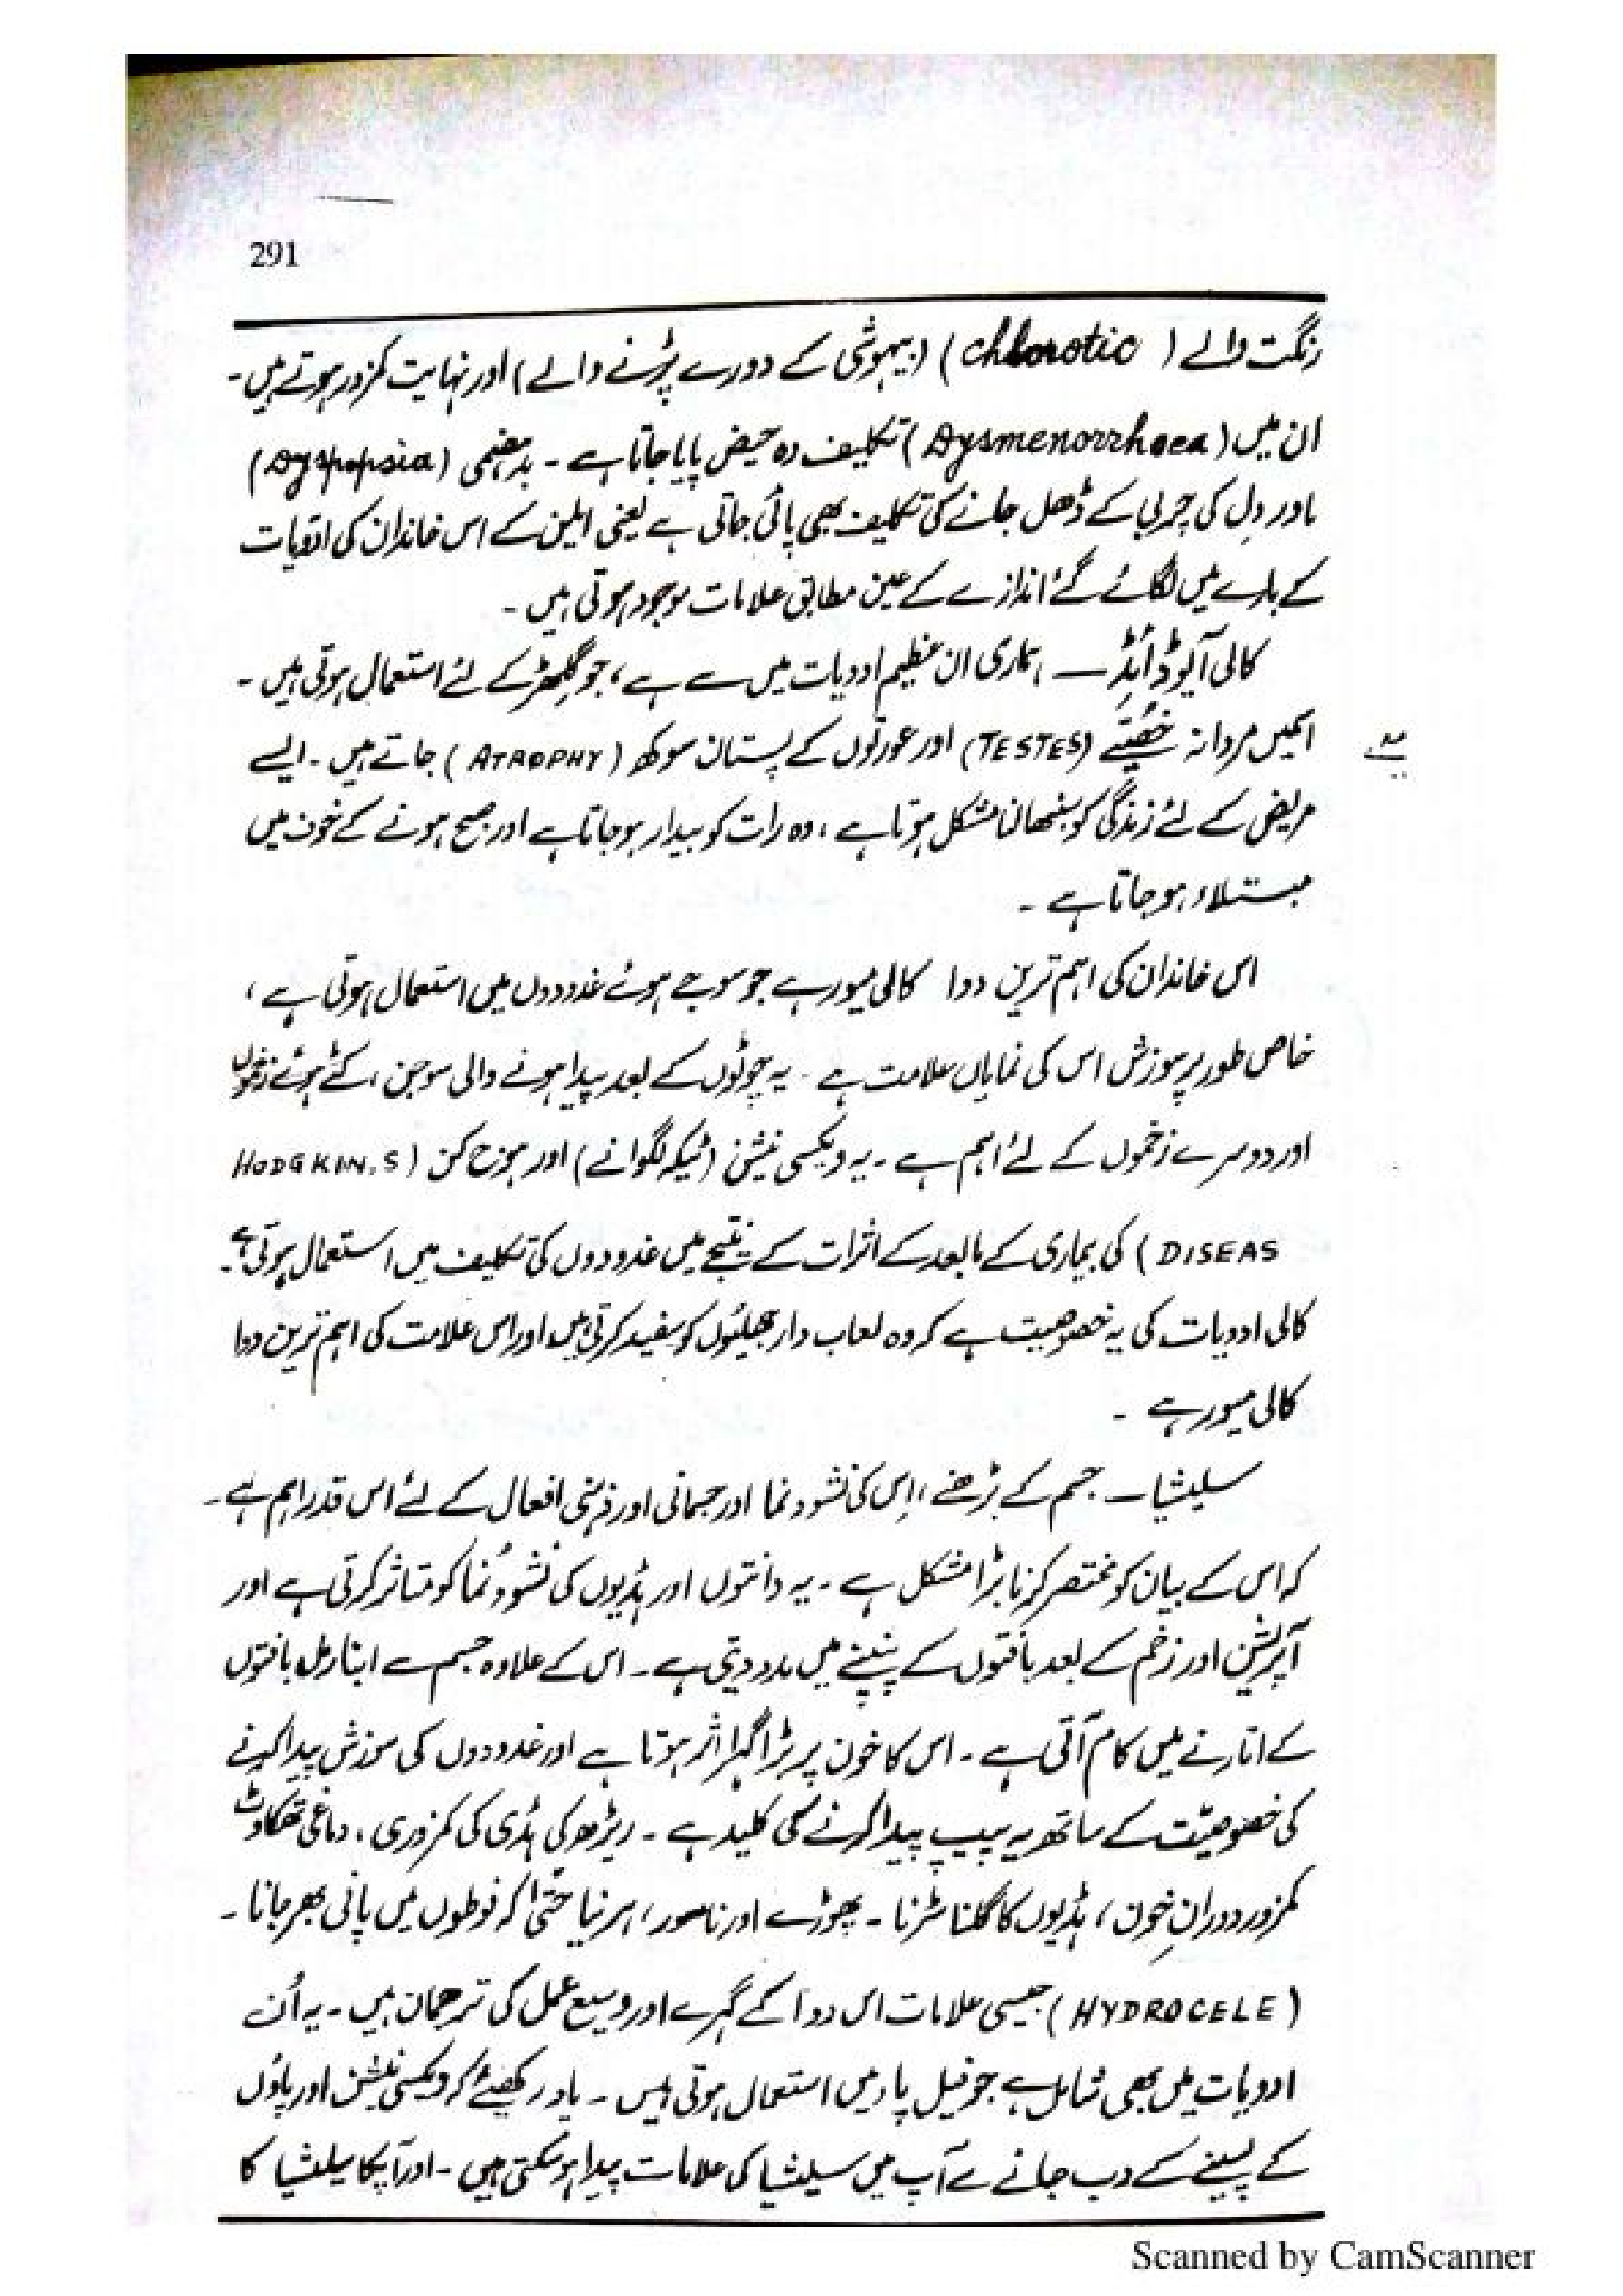 291
رنگت والے (chlorotic) (بیہوشی کے دورے پڑنے والے) اور نہایت کمزور ہوتے ہیں۔
ان میں (Dysmenorrhoea) تکلیف دہ حیض پایا جاتا ہے۔ بدہضمی (Dyspepsia)
اور دل کی چربی کے ڈھل جانے کی تکلیف بھی پائی جاتی ہے یعنی ایلن کے اس خاندان کی ادویات
کے بارے میں لگائے گئے اندازے کے عین مطابق علامات موجود ہوتی ہیں۔
کالی آیوڈائڈ — ہماری ان عظیم ادویات میں سے ہے، جو گلہڑ کے لئے استعمال ہوتی ہیں۔
اسمیں مردانہ خصیئے (TESTES) اور عورتوں کے پستان سوکھ (ATROPHY) جاتے ہیں۔ ایسے
مریض کے لئے زندگی کو سنبھالنا مشکل ہوتا ہے، وہ رات کو بیدار ہو جاتا ہے اور صبح ہونے کے خوف میں
مبتلاء ہو جاتا ہے۔
اس خاندان کی اہم ترین دوا کالی میور ہے جو سوجے ہوئے غدودوں میں استعمال ہوتی ہے،
خاص طور پر سوزش اس کی نمایاں علامت ہے۔ یہ چوٹوں کے بعد پیدا ہونے والی سوجن، کٹے ہوئے زخموں
اور دوسرے زخموں کے لئے اہم ہے۔ یہ ویکسی نیشن (ٹیکہ لگوانے) اور ہوزح کن (HODGKIN,S
DISEAS) کی بیماری کے مابعد کے اثرات کے نتیجے میں غدودوں کی تکلیف میں استعمال ہوتی ہے۔
کالی ادویات کی یہ خصوصیت ہے کہ وہ لعاب دار جھلیوں کو سفید کرتی ہیں اور اس علامت کی اہم ترین دوا
کالی میور ہے۔
سلیشیا — جسم کے بڑھنے، اِس کی نشوونما اور جسمانی اور ذہنی افعال کے لئے اس قدر اہم ہے۔
کہ اس کے بیان کو مختصر کرنا بڑا مشکل ہے۔ یہ دانتوں اور ہڈیوں کی نشوونُما کو متاثر کرتی ہے اور
آپریشن اور زخم کے بعد بافتوں کے پنپنے میں مدد دیتی ہے۔ اس کے علاوہ جسم سے ابنارمل بافتوں
کے اتارنے میں کام آتی ہے۔ اس کا خون پر بڑا گہرا اثر ہوتا ہے اور غدودوں کی سوزش پیدا کرنے
کی خصوصیّت کے ساتھ یہ پیپ پیدا کرنے کی کلید ہے۔ ریڑھ کی ہڈی کی کمزوری، دماغی تھکاوٹ
کمزور دورانِ خون، ہڈیوں کا گلنا سڑنا۔ پھوڑے اور ناسور، ہرنیا حتیٰ کہ فوطوں میں پانی بھر جانا۔
(HYDROCELE) جیسی علامات اس دوا کے گہرے اور وسیع عمل کی ترجمان ہیں۔ یہ اُن
ادویات میں بھی شامل ہے جو فیل پا میں استعمال ہوتی ہیں۔ یاد رکھیئے کہ ویکسی نیشن اور پاؤں
کے پسینے کے دب جانے سے آپ میں سلیشیا کی علامات پیدا ہو سکتی ہیں۔ اور آپکا سلیشیا کا
Scanned by CamScanner